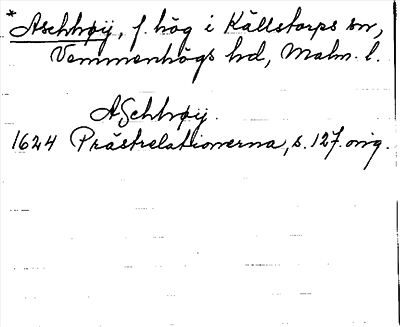 * Aschhøÿ, f. hög i Källstorps sn,
Vemmenhögs hd, Malm. l.
ASchhøÿ.
1624 Prästrelationerna, s. 127. orig.